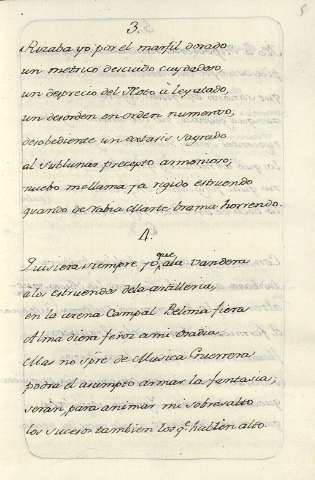 5
3.
Rizaba yo por el marfil dorado
un metrico descuido cuydadoso,
un desprecio del Noto a ley atado,
un desorden en orden numeroso;
desobediente un extasis sagrado
al sublunar precepto armonioso;
nuebo me llama ya rigido estruendo
quando de rabia Marte brama horrendo.
4.
Quisiera siempre yo que ala vandera
a los estruendos de la artilleria,
en la arena Campal Belona fiera
Alma diera feroz a mi osadia
Mas no spre de Musica Guerrera
podra el asumpto armar la fantasia;
seran, para animar mi sobresalto
los sucesos tambien los q.e hablen alto.